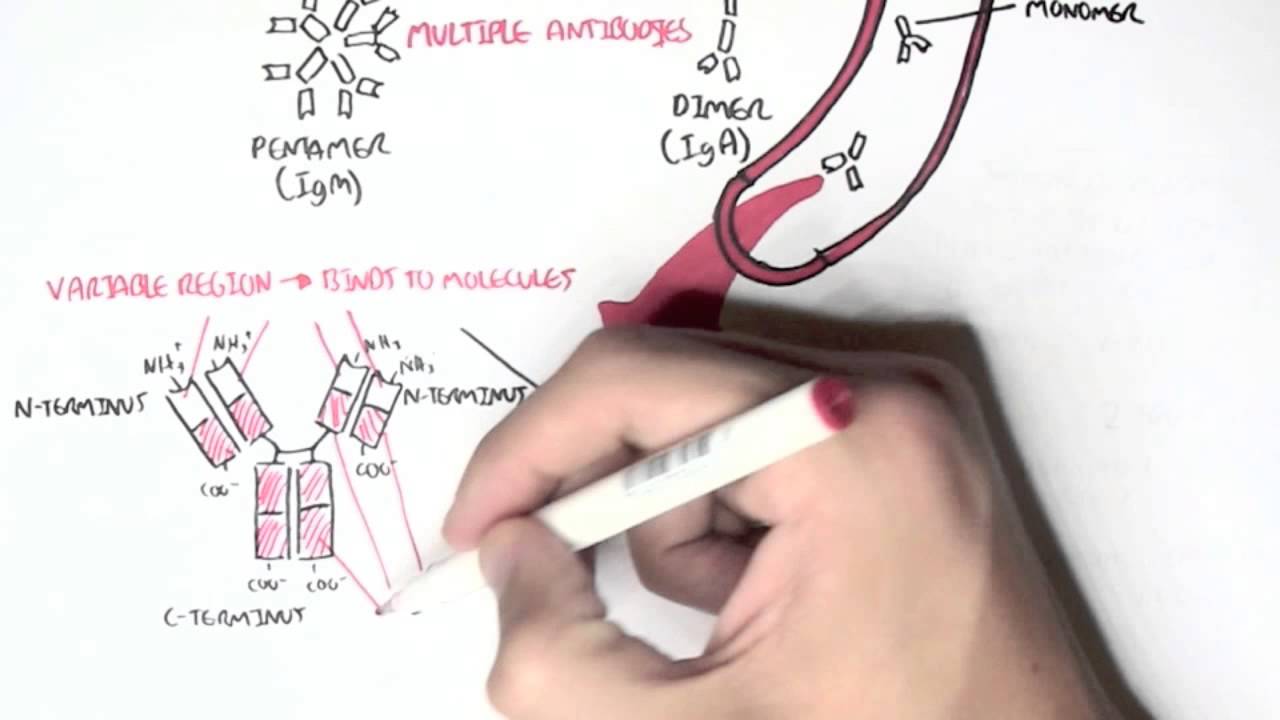 MONOMER
MULTIPLE ANTIBODIES
DIMER
(IgA)
PENTAMER
(IgM)
VARIABLE REGION → BINDS TO MOLECULES
NH₃⁺ NH₃⁺ NH₃ NH₃
N-TERMINUS N-TERMINUS
COO⁻ COO⁻
COO⁻ COO⁻
C-TERMINUS